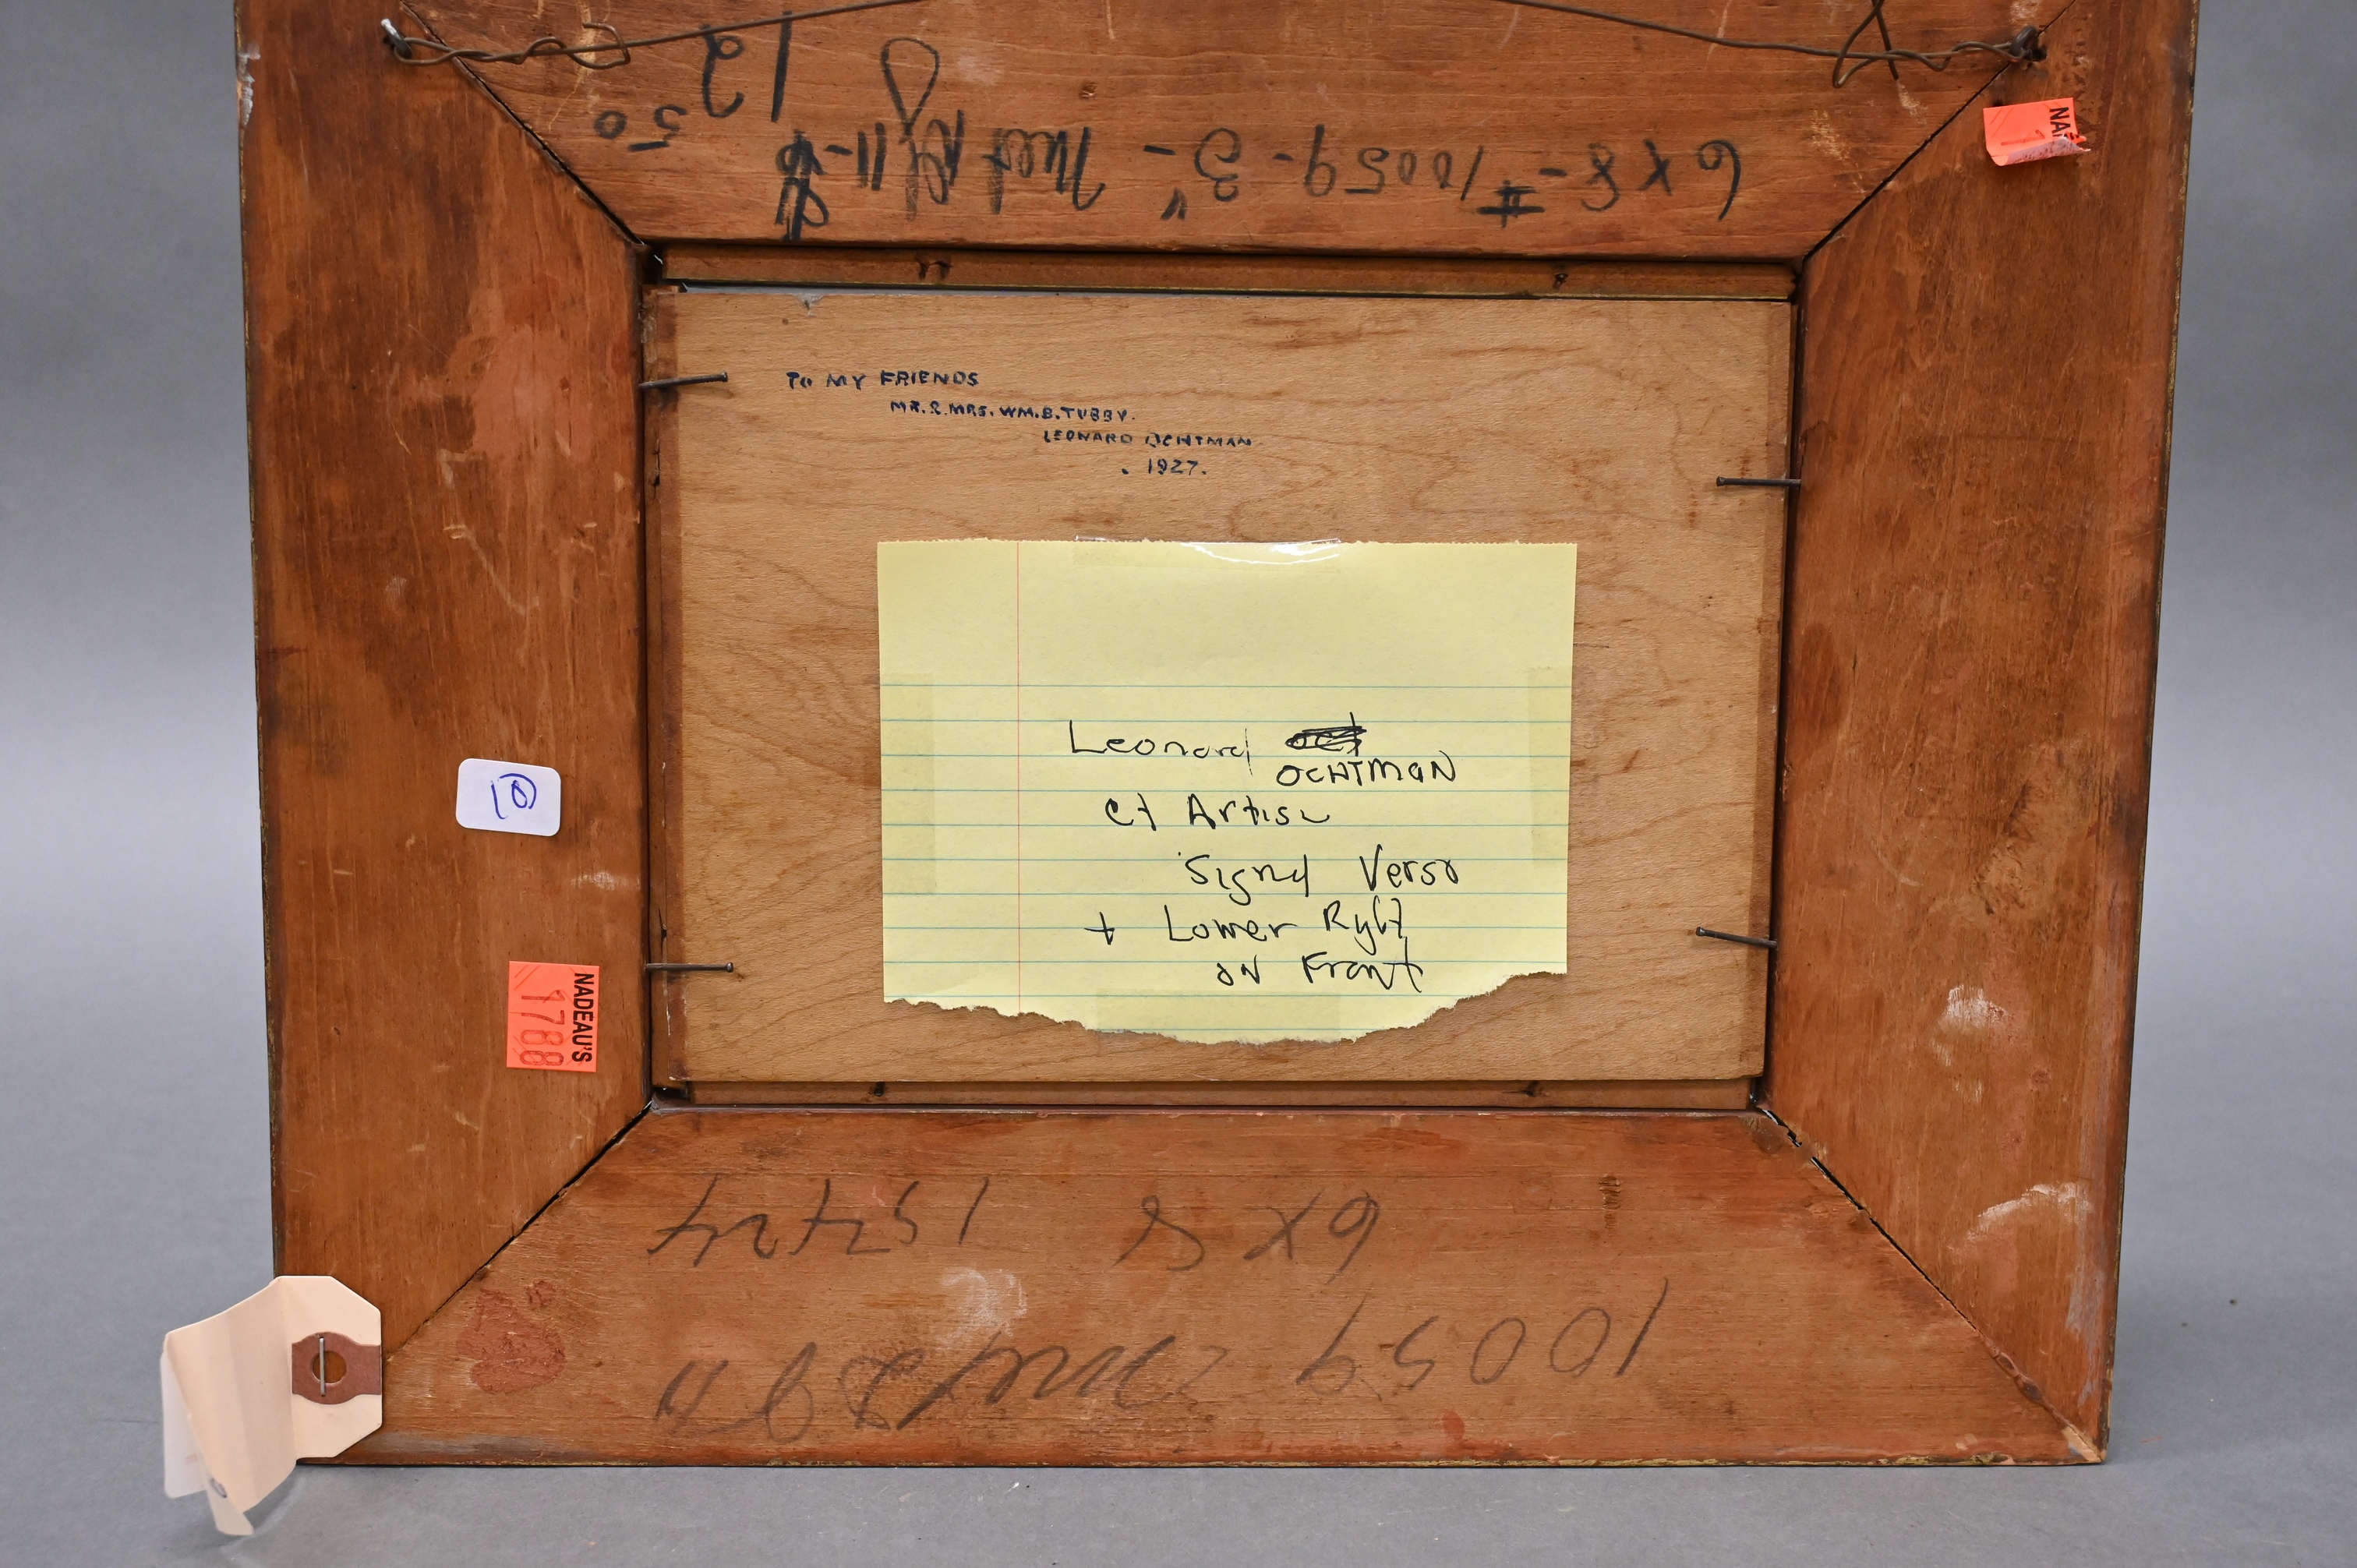 12 50
6 x 8 - # 10059 - 3" -
NA
TO MY FRIENDS
MR. & MRS. WM. B. TUBBY.
LEONARD OCHTMAN
. 1927.
Leonard
OCHTMAN
Ct Artist
Signd Verso
+ Lower Right
ON Front
10
NADEAU'S
1788
6 x 8
10059